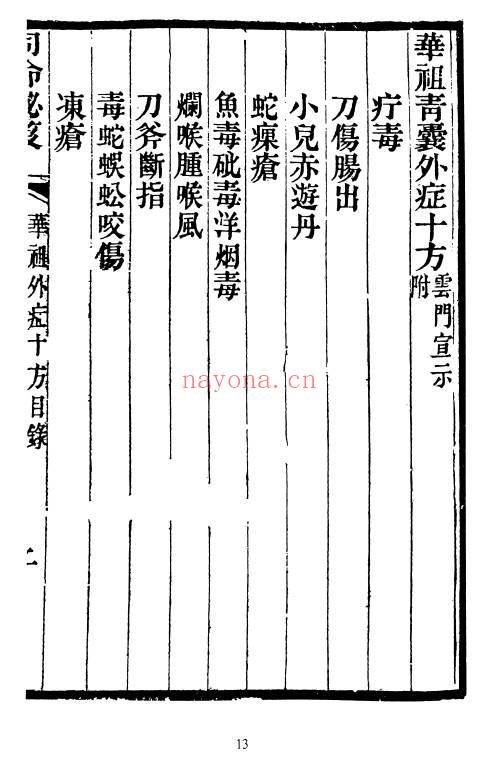 華祖青囊外症十方
雲門宣示
附
疔毒
刀傷腸出
小兒赤遊丹
蛇瘰瘡
魚毒砒毒洋烟毒
爛喉腫喉風
刀斧斷指
毒蛇蜈蚣咬傷
凍瘡
命祕笈
華祖外症十方目錄
nayona.cn
13